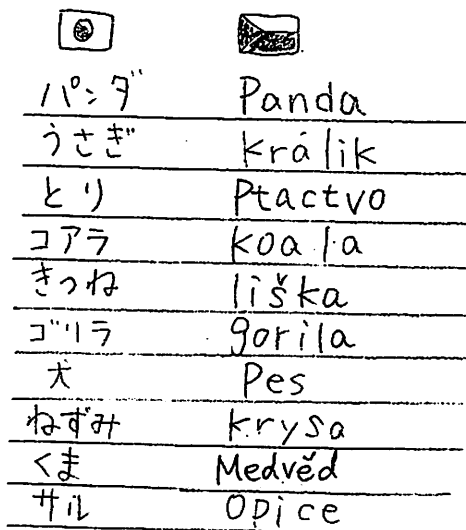 パンダ Panda
うさぎ králik
とり Ptactvo
コアラ koala
きつね liška
ゴリラ gorila
犬 Pes
ねずみ krysa
くま Medvěd
サル Opice